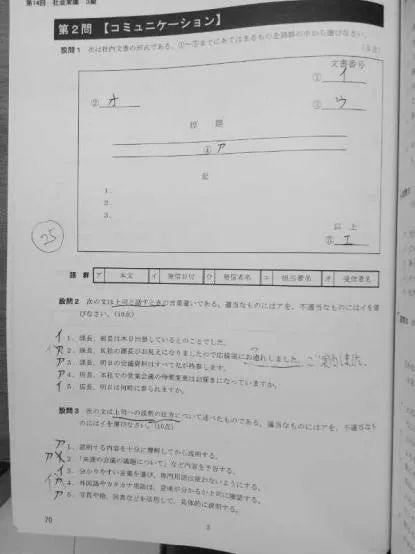 第14回 社会常識 3級
第2問 【コミュニケーション】
設問1 次は社内文書の形式である。①〜⑤までにあてはまるものを語群の中から選びなさい。
文書番号
① イ
② オ
③ ウ
標題
④ ア
記
1.
2.
3.
以上
⑤ エ
25
語群 ア 本文 イ 発信日付 ウ 発信者名 エ 担当者名 オ 受信者名
設問2 次の文は上司と話すときの言葉遣いである。適当なものにはアを、不適当なものにはイを選びなさい。(10点)
イ 1. 課長、部長は本日出張しているとのことでした。
2. 課長、K社の課長がお見えになりましたので応接室にお通れしました。
ア 3. 課長、明日の会議資料はすべて私が持参します。
4. 課長、本社での営業会議の時間変更はお聞きになっていますか。
イ 5. 課長、明日は何時に参られますか。
設問3 次の文は上司への説明の仕方について述べたものである。適当なものにはアを、不適当なものにはイを選びなさい。(10点)
ア 1. 説明する内容を十分に理解してから説明する。
2. 「来週の会議の議題について」など内容を予告する。
3. 分かりやすい言葉を選び、専門用語は使わないようにする。
4. 外国語やカタカナ用語は、意味が分かるか上司に確認する。
ア 5. 写真や絵、図表などを活用して、具体的に説明する。
70
3